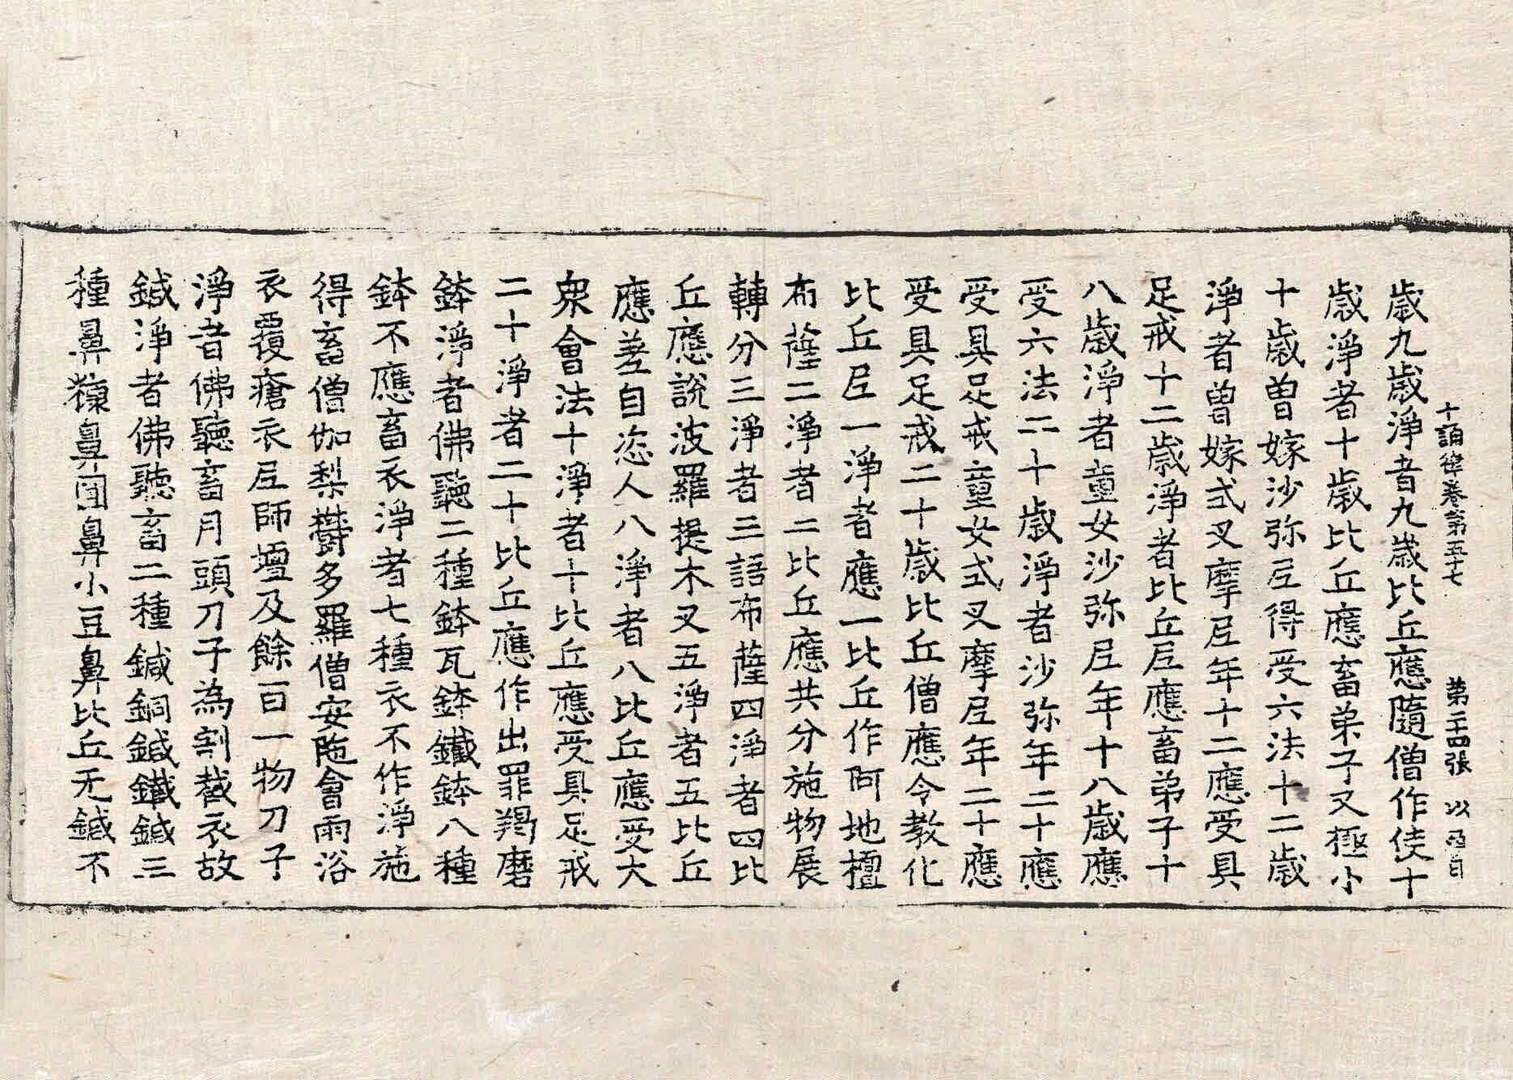 十誦律卷第五十七 第二十四張 以
歲九歲淨者九歲比丘應隨僧作使十
歲淨者十歲比丘應畜弟子又極小
十歲曾嫁沙弥尼得受六法十二歲
淨者曾嫁式叉摩尼年十二應受具
足戒十二歲淨者比丘尼應畜弟子十
八歲淨者童女沙弥尼年十八歲應
受六法二十歲淨者沙弥年二十應
受具足戒童女式叉摩尼年二十應
受具足戒二十歲比丘僧應令教化
比丘尼一淨者應一比丘作阿地檀
布薩二淨者二比丘應共分施物展
轉分三淨者三語布薩四淨者四比
丘應說波羅提木叉五淨者五比丘
應差自恣人八淨者八比丘應受大
衆會法十淨者十比丘應受具足戒
二十淨者二十比丘應作出罪羯磨
鉢淨者佛聽二種鉢瓦鉢鐵鉢八種
鉢不應畜衣淨者七種衣不作淨施
得畜僧伽梨欝多羅僧安陁會雨浴
衣覆瘡衣尼師壇及餘百一物刀子
淨者佛聽畜月頭刀子為割截衣故
鍼淨者佛聽畜二種鍼銅鍼鐵鍼三
種鼻䊪鼻圓鼻小豆鼻比丘无鍼不